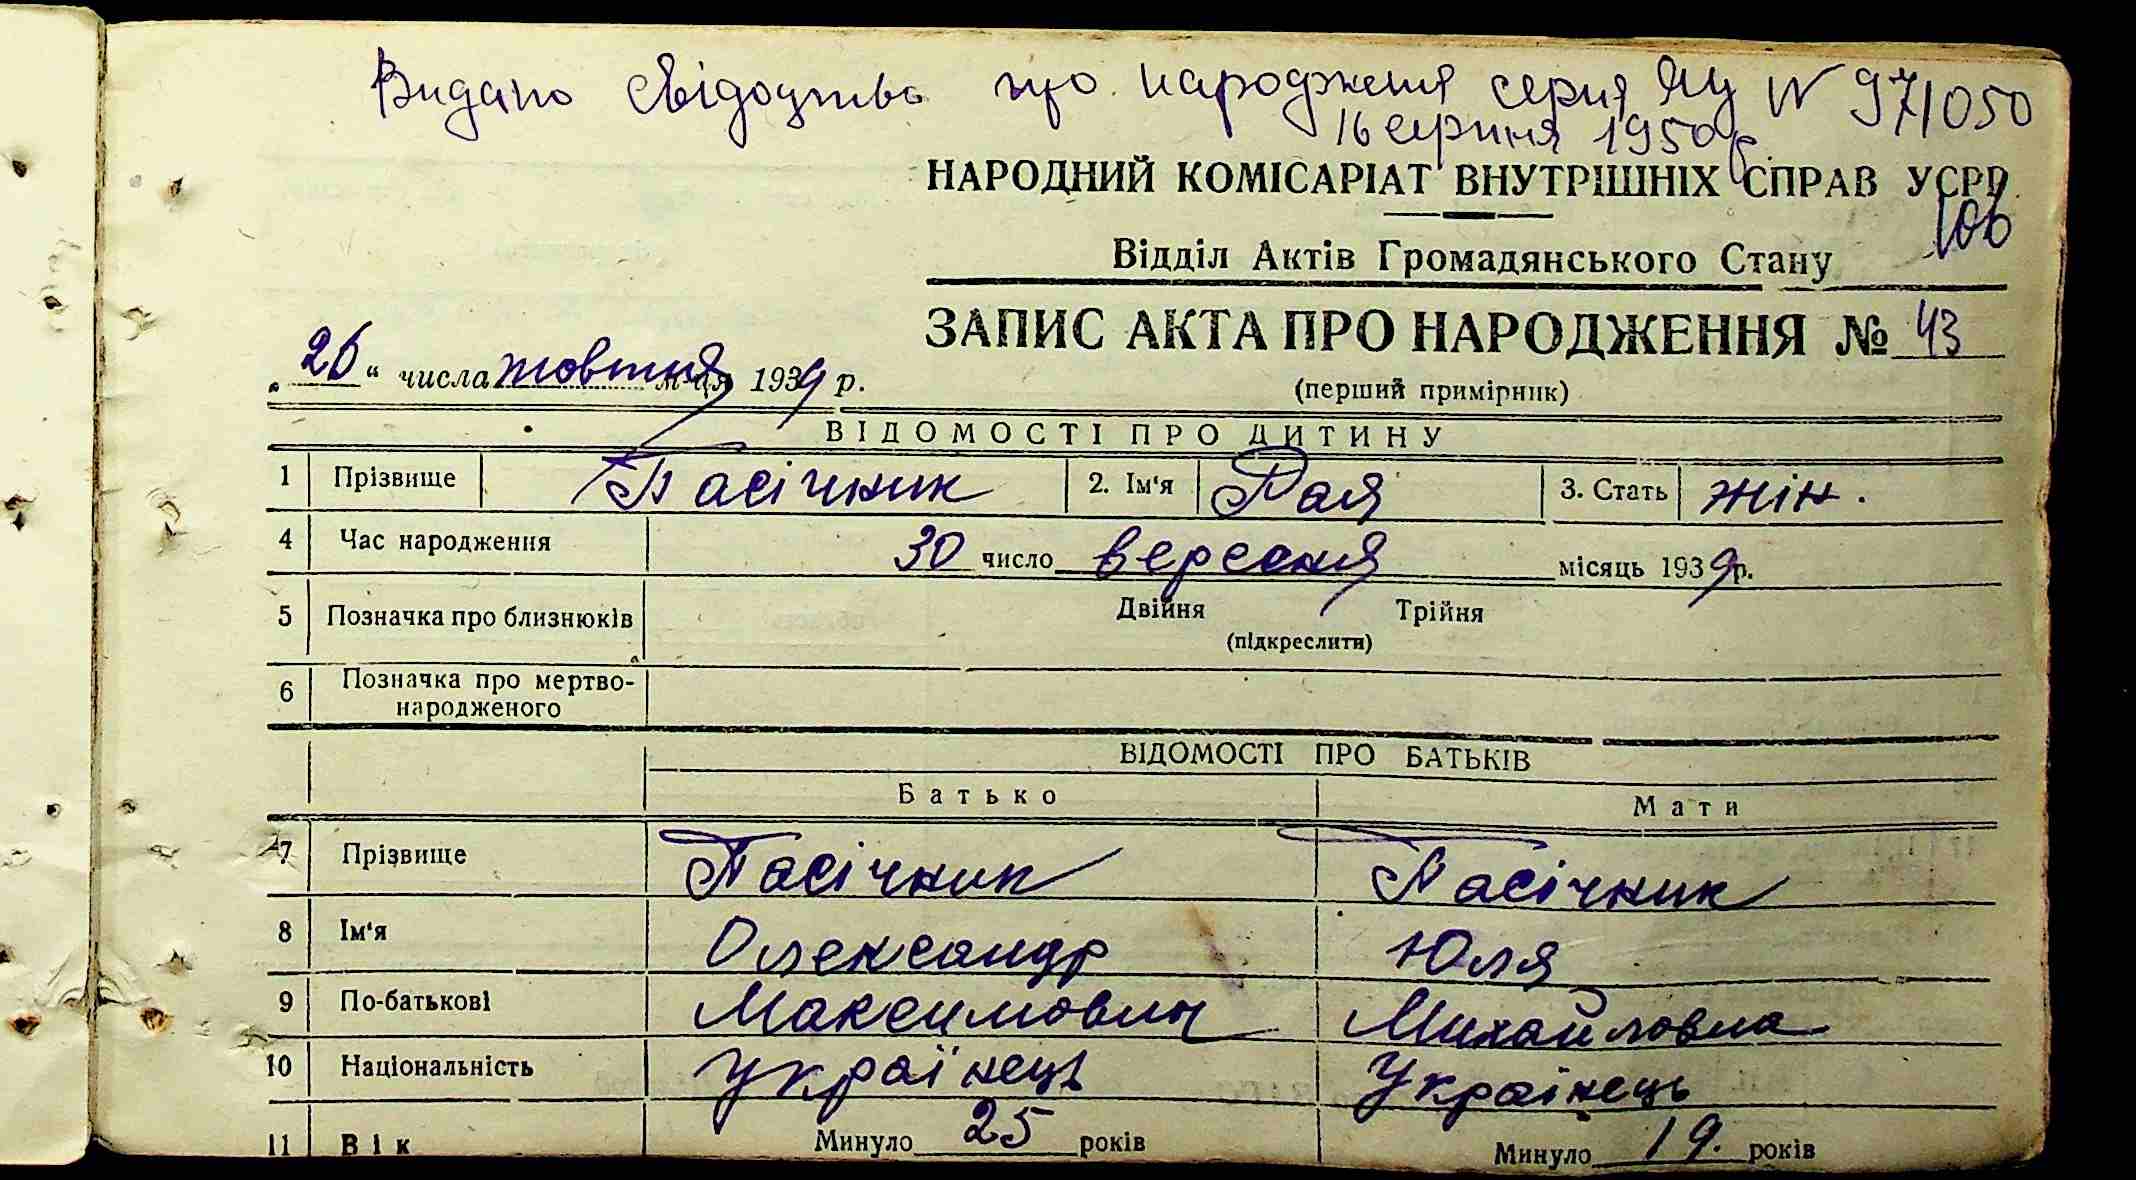 Видано свідоцтво про народження серия ЯЦ № 971050
16 серпня 1950 р.
НАРОДНИЙ КОМІСАРІАТ ВНУТРІШНІХ СПРАВ УСРР
106
Відділ Актів Громадянського Стану
ЗАПИС АКТА ПРО НАРОДЖЕННЯ № 43
„ 26 “ числа жовтня м-ця 1939 р.
(перший примірник)
ВІДОМОСТІ ПРО ДИТИНУ
1 Прізвище Пасічник 2. Ім'я Рая 3. Стать жін.
4 Час народження 30 число вересня місяць 1939 р.
5 Позначка про близнюків Двійня Трійня
(підкреслити)
6 Позначка про мертво-
народженого
ВІДОМОСТІ ПРО БАТЬКІВ
Батько Мати
7 Прізвище Пасічник Пасічник
8 Ім'я Олександр Юля
9 По-батькові Максимович Михайловна
10 Національність Українець Українець
11 Вік Минуло 25 років Минуло 19. років